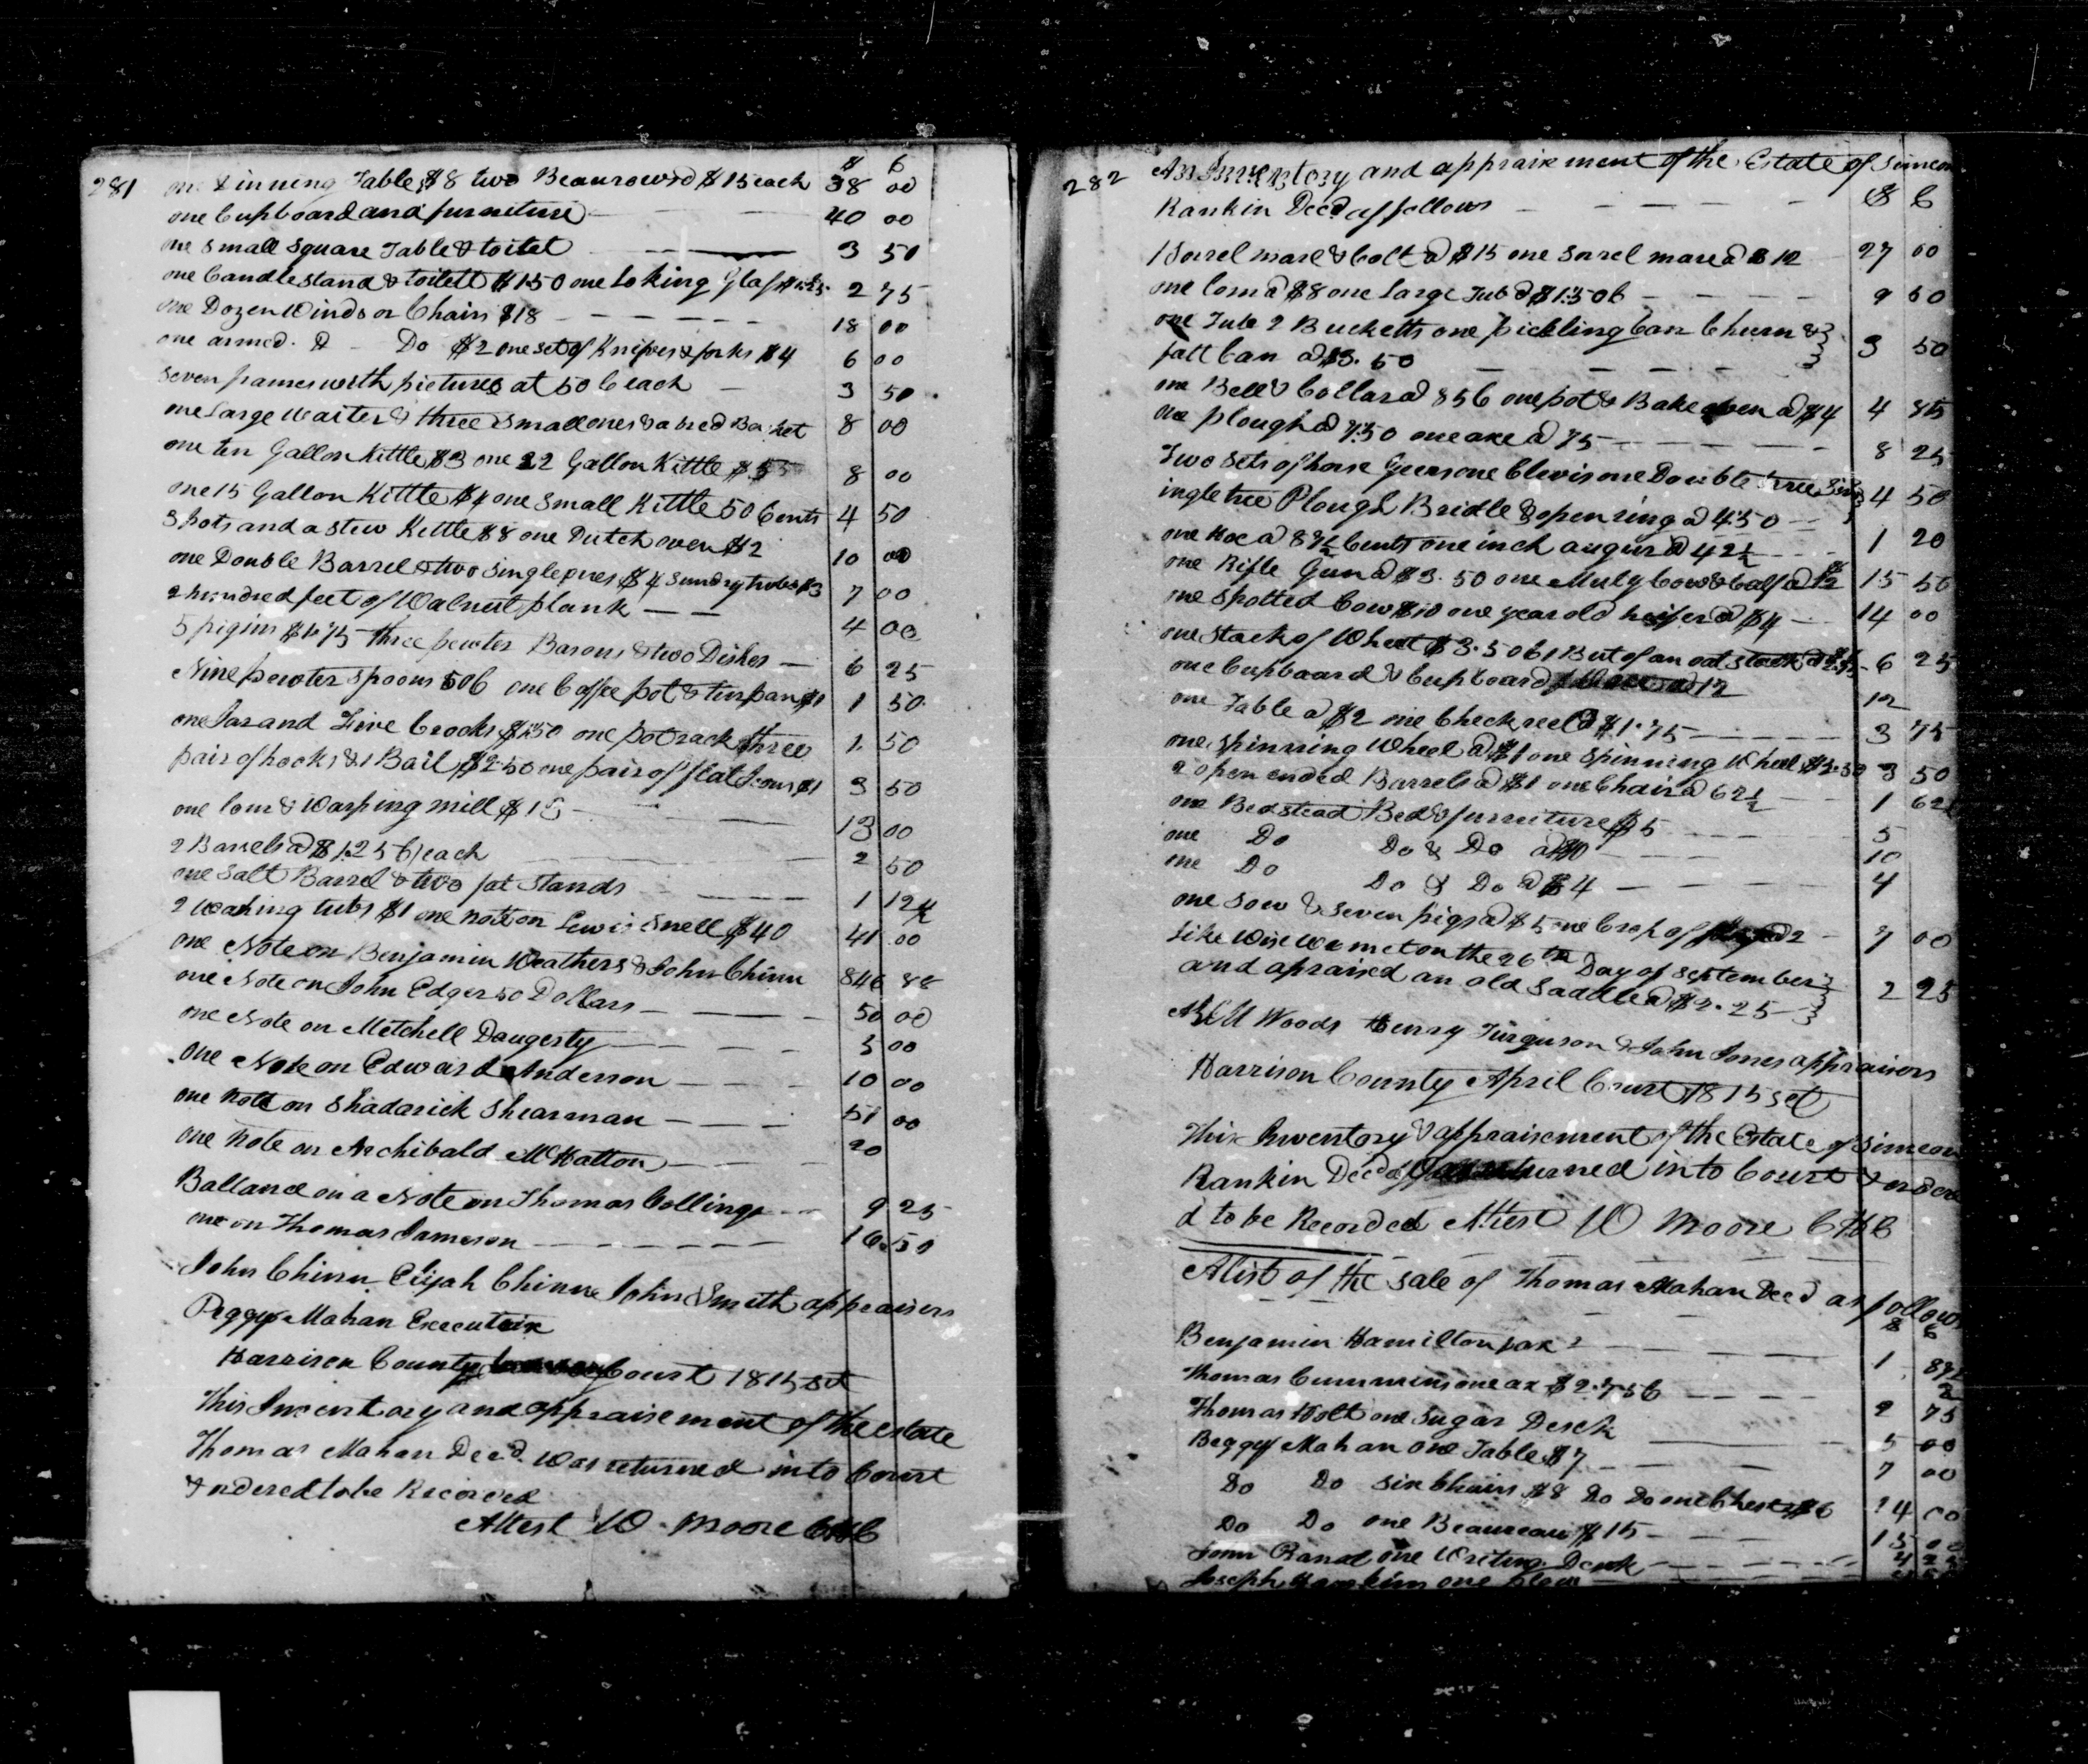 281
$ C
one Dinning Table $8 two Beaurows @ $15 each 38 00
one Cupboard and furneture 40 00
one small square Table & toilet 3 50
one Candlestand & toilett $1.50 one Loking Glass $1.25 2 75
one Dozen Windsor Chairs $18 18 00
one armed Do $2 one set of Knifves & forks $4 6 00
seven frames with pictures at 50 C each 3 50
one Large Waiter & three small ones & a bred Basket 8 00
one ten Gallon Kittle $3 one 22 Gallon Kittle $5 8 00
one 15 Gallon Kittle $4 one small Kittle 50 Cents 4 50
3 pots and a stew Kettle $8 one Dutch oven $2 10 00
one Double Barrel & two single $4 sundry $3 7 00
2 hundred feet of Walnut plank 4 00
5 pigins $1.75 three pewter Basons & two Dishes 6 25
Nine pewter spoons 50C one Coffee pot & tinpan $1 1 50
one Jar and Five Crocks $1.50 one potrack three 1 50
pair of hooks & 1 Bail $2.50 one pair of flat Irons $1 3 50
one Lom & Warping mill $13 13 00
2 Barrels @ $1.25 C each 2 50
one Salt Barrel & two fat stands 1 12½
2 Washing tubs $1 one note on Lewis Snell $40 41 00
one Note on Benjamin Weathers & John Chinn 846 88
one Note on John Edger 50 Dollars 50 00
one Note on Metchell Daugerty 5 00
one Note on Edward Anderson 10 00
one note on Shadarick Shearman 51 00
one note on Archibald McHatton 20
Balland on a Note on Thomas Collings 9 25
one on Thomas Jameson 16.50
John Chinn Elijah Chinn John Smith appraisers
Peggy Mahan Executrix
Harrison County Court 1815 set
This Inventory and appraisement of the estate
Thomas Mahan Deed. Was returned into Court
& ordered to be Recorded
Attest W. Moore CHC
282
An Inventory and appraisement of the Estate of Simeon
Rankin Deed as follows $ C
1 Sorrel mare & Colt @ $15 one Sorrel mare @ $12 27 00
one Lom @ $8 one Large Tub @ $1.50C 9 50
one Tub 2 Bucketts one pickling Can Churn &
fatt Can @ $3.50 3 50
one Bell & Collar @ 85C one pot & Bake oven @ $4 4 85
one plough @ 7.50 one axe @ 75 8 25
Two sets of horse Geers one Clevis one Double tree
ingle tree Plough Bridle & open ring @ 4.50 4 50
one Hoe @ Cents one inch augur @ 42½ 1 20
one Rifle Gun @ $3.50 one Muly Cow & Calf @ $12 15 50
one spotted Cow $10 one year old heifer @ $4 14 00
one stack of Wheet $3.50C 1 But of an oat stack @ 6 25
one Cupboard & Cupboard @ 12 12
one Table @ $2 one Check reel @ $1.75 3 75
one spinning Wheel @ $1 one Spinning Wheel $2.50 3 50
2 open ended Barrels @ $1 one Chair @ 62½ 1 62½
one Bedstead Bed & furneiture $5 5
one Do Do & Do @ $10 10
one Do Do & Do @ $4 4
one sow & seven pigs @ $5 one Crop of @ 2 7 00
Like Wise we met on the 26th Day of September
and apraised an old Saddle @ $2.25 2 25
Woods Henry Furguson & John Jones appraisors
Harrison County April Court 1815 set
This Inventory & appraisement of the Estate of Simeon
Rankin Deed was returned into Court & ordere
d to be Recorded Attest W Moore CHC
A list of the sale of Thomas Mahan Deed as follows
$ C
Benjamin Hamilton 1
Thomas Cummins one ax $2.75C 2 75
Thomas Holt one Sugar Desck 5 00
Peggy Mahan one Table $7 7 00
Do Do six Chairs $8 Do Do one Chest $6 14 00
Do Do one Beaureau $15 15 00
John Rand one Writing Desk
Joseph one